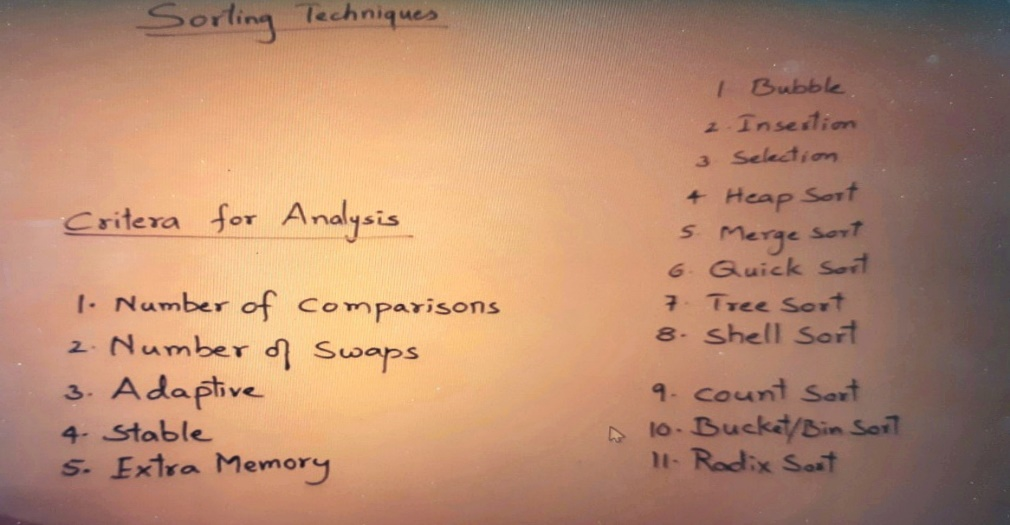 Sorting Techniques
Critera for Analysis
1. Number of Comparisons
2. Number of Swaps
3. Adaptive
4. Stable
5. Extra Memory
1 Bubble
2. Insertion
3 Selection
4 Heap Sort
5. Merge Sort
6. Quick Sort
7. Tree Sort
8. Shell Sort
9. Count Sort
10. Bucket/Bin Sort
11. Radix Sort